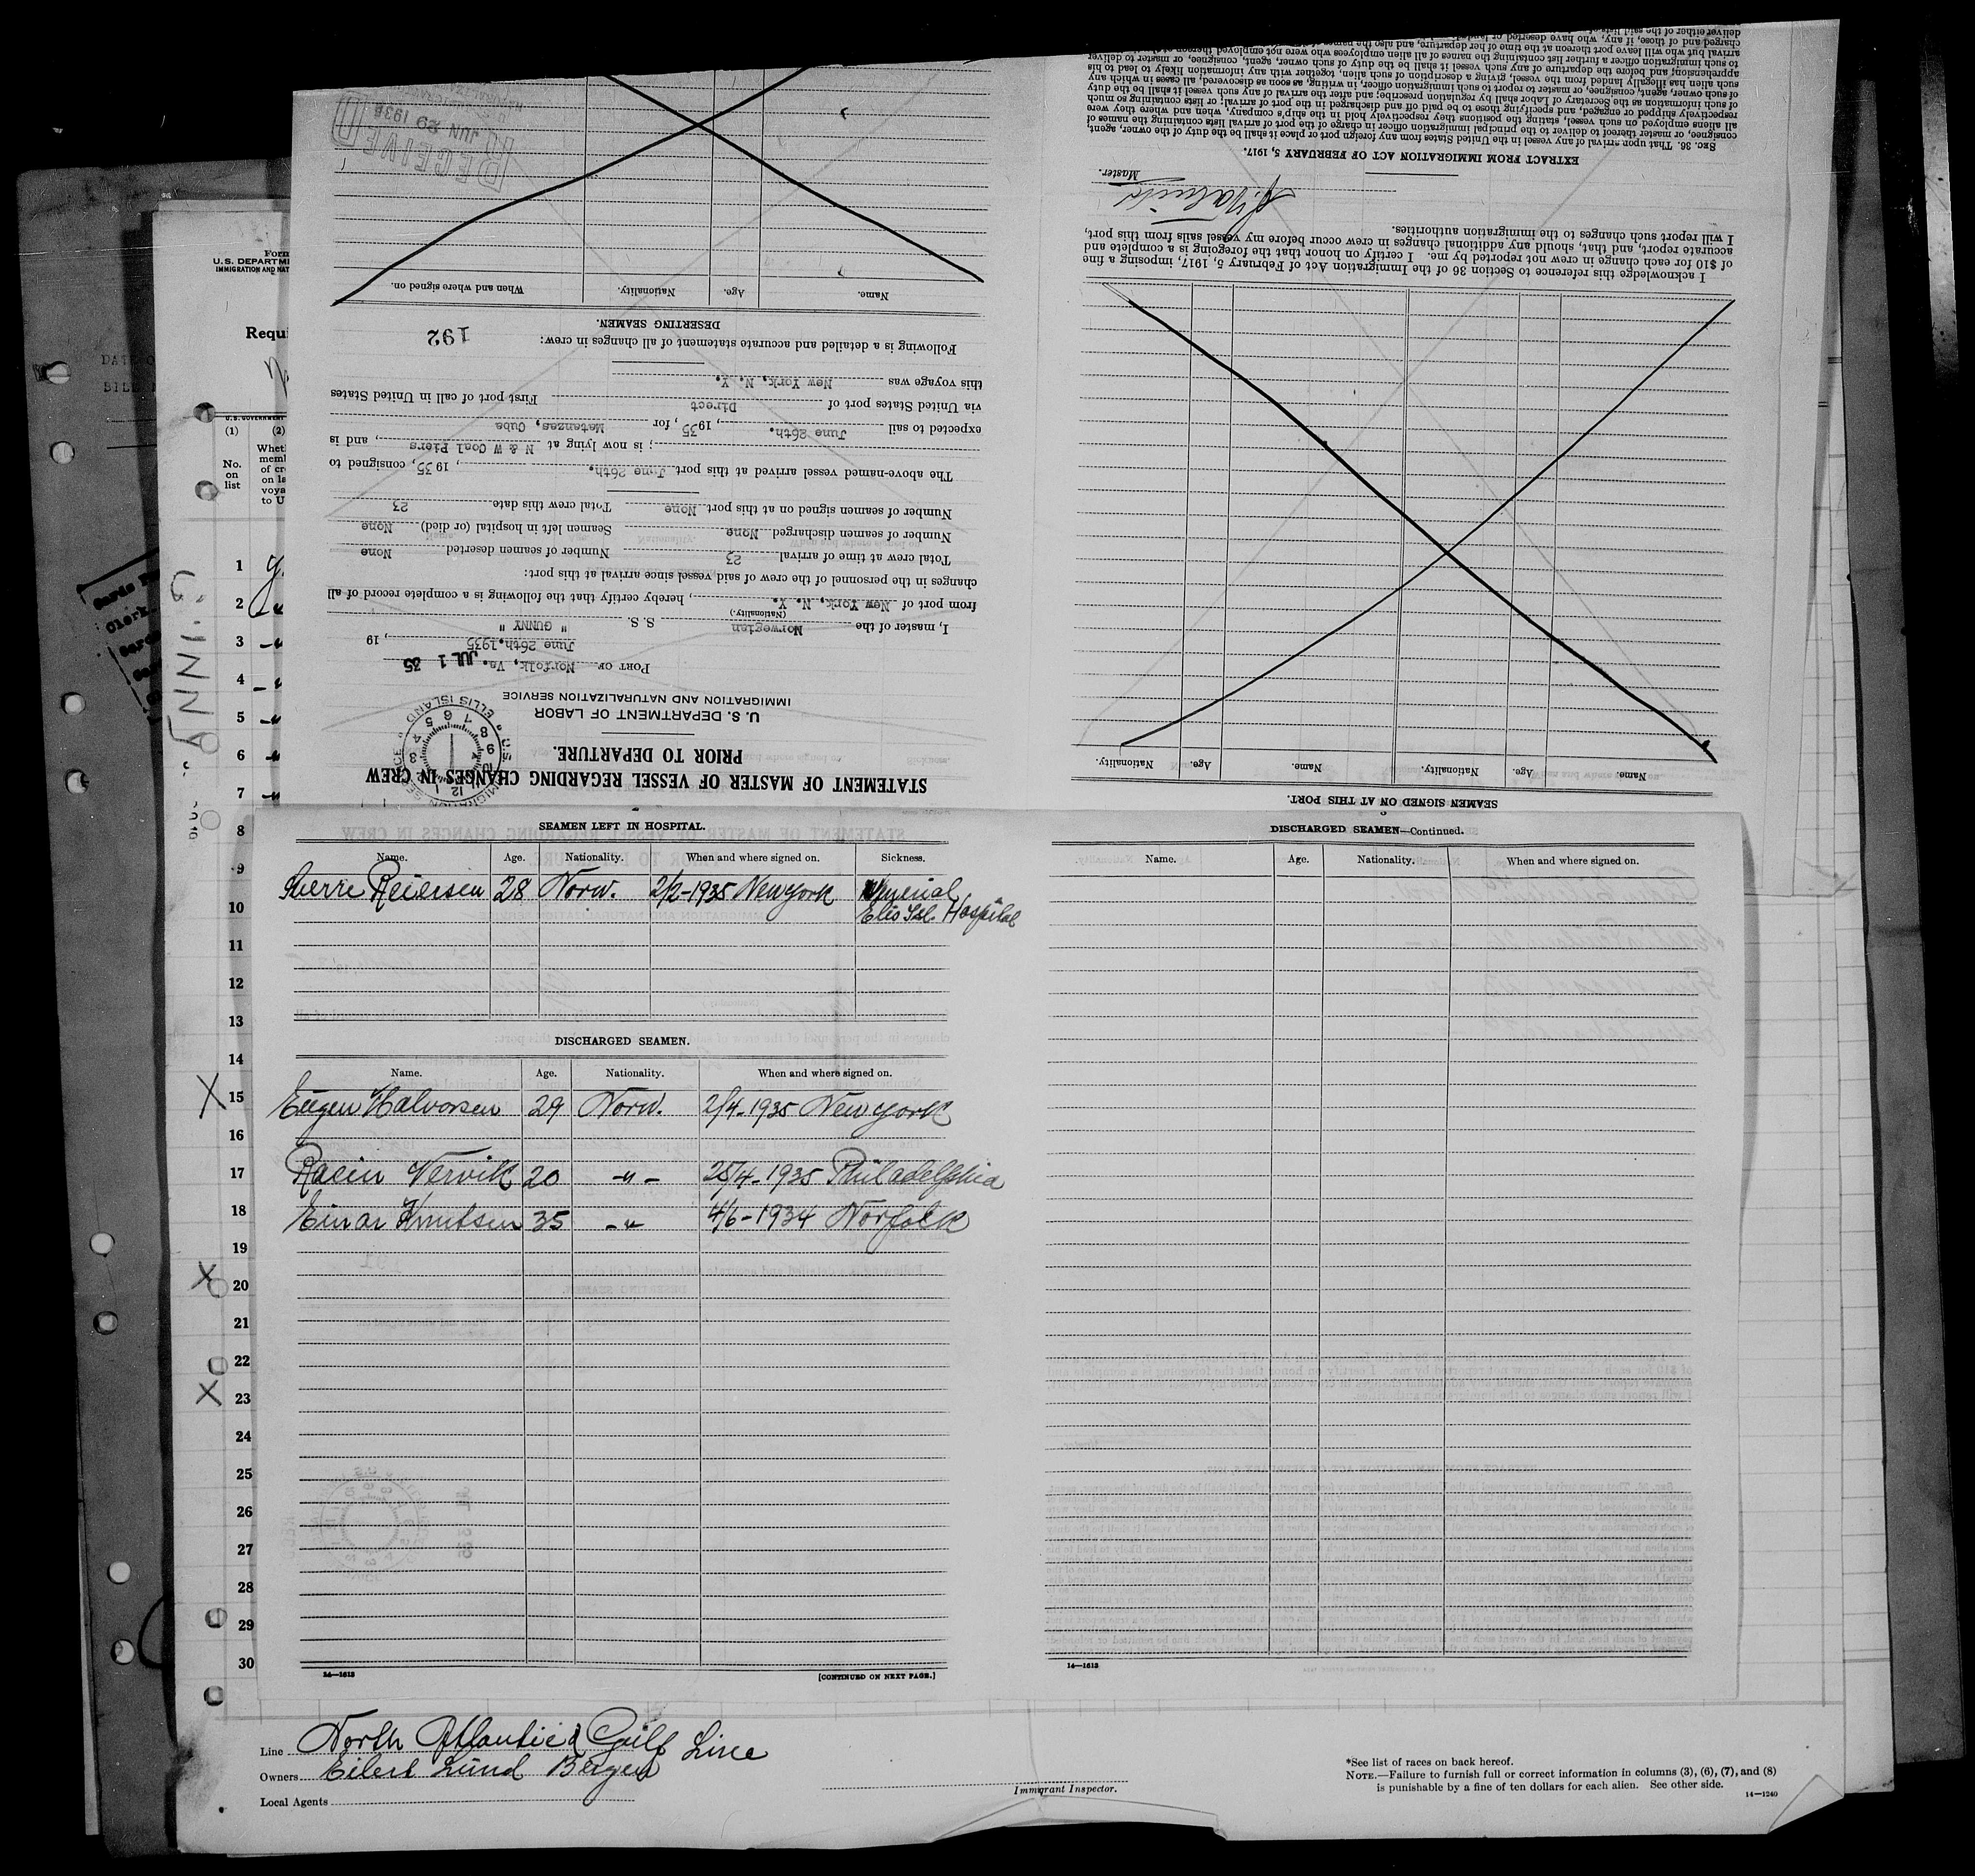 STATEMENT OF MASTER OF VESSEL REGARDING CHANGES IN CREW
PRIOR TO DEPARTURE.
U. S. DEPARTMENT OF LABOR
IMMIGRATION AND NATURALIZATION SERVICE
PORT OF Norfolk, Va. JUL 1 35
June 26th.1935, 19
I, master of the Norwegian S. S. " GUNNY "
(Nationality.)
from port of New York, N. Y., hereby certify that the following is a complete record of all
changes in the personnel of the crew of said vessel since arrival at this port:
Total crew at time of arrival 23 Number of seamen deserted None
Number of seamen discharged None Seamen left in hospital (or died) None
Number of seamen signed on at this port None Total crew this date 23
The above-named vessel arrived at this port June 26th., 1935, consigned to
; is now lying at N & W Coal Piers, and is
expected to sail June 26th., 1935, for Matanzas, Cuba
via United States port of Direct First port of call in United States
this voyage was New York, N. Y.
Following is a detailed and accurate statement of all changes in crew:
192
DESERTING SEAMEN.
Name. Age. Nationality. When and where signed on.
RECEIVED
JUN 29 1935
SEAMEN SIGNED ON AT THIS PORT.
Name. Age. Nationality. Name. Age. Nationality.
I acknowledge this reference to Section 36 of the Immigration Act of February 5, 1917, imposing a fine
of $10 for each change in crew not reported by me. I certify on honor that the foregoing is a complete and
accurate report, and that, should any additional changes in crew occur before my vessel sails from this port,
I will report such changes to the immigration authorities.
Master.
EXTRACT FROM IMMIGRATION ACT OF FEBRUARY 5, 1917.
SEC. 36. That upon arrival of any vessel in the United States from any foreign port or place it shall be the duty of the owner, agent,
consignee, or master thereof to deliver to the principal immigration officer in charge of the port of arrival lists containing the names of
all aliens employed on such vessel, stating the positions they respectively hold in the ship's company, when and where they were
respectively shipped or engaged, and specifying those to be paid off and discharged in the port of arrival; or lists containing so much
of such information as the Secretary of Labor shall by regulation prescribe; and after the arrival of any such vessel it shall be the duty
of such owner, agent, consignee, or master to report to such immigration officer, in writing, as soon as discovered, all cases in which any
such alien has illegally landed from the vessel, giving a description of such alien, together with any information likely to lead to his
apprehension; and before the departure of any such vessel it shall be the duty of such owner, agent, consignee, or master to deliver
to such immigration officer a further list containing the names of all alien employees who were not employed thereon at the
arrival but who will leave port thereon at the time of her departure, and also the names of
charged and of those, if any, who have deserted or landed
deliver either of the said lists
Form
U. S. DEPARTM
IMMIGRATION AND NAT
Requi
U.S. GOVERNMENT
(1) (2)
No. on list
Whet
memb
of cr
on la
voya
to U
1
2
3
4
5
6
7
8
9
10
11
12
13
14
15
16
17
18
19
20
21
22
23
24
25
26
27
28
29
30
SEAMEN LEFT IN HOSPITAL.
Name. Age. Nationality. When and where signed on. Sickness.
Sverre Reiersen 28 Norw. 2/2-1935 New York
Elis Isl. Hospital
DISCHARGED SEAMEN.
Name. Age. Nationality. When and where signed on.
Eugen Halvorsen 29 Norw. 2/4-1935 New York
Nervik 20 -"- 25/4-1935 Philadelphia
Einar Knutsen 35 -"- 4/6-1934 Norfolk
14—1613 [CONTINUED ON NEXT PAGE.]
DISCHARGED SEAMEN—Continued.
Name. Age. Nationality. When and where signed on.
14—1613
Line North Atlantic & Gulf Line
Owners Eilert Lund Bergen
Local Agents
Immigrant Inspector.
*See list of races on back hereof.
NOTE.—Failure to furnish full or correct information in columns (3), (6), (7), and (8)
is punishable by a fine of ten dollars for each alien. See other side.
14—1240